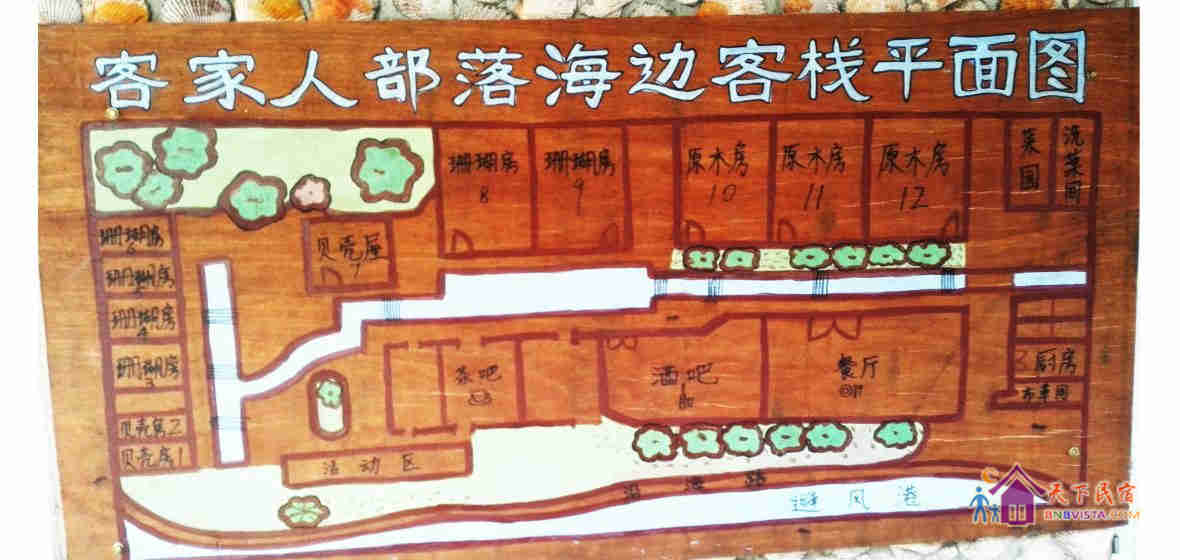 客家人部落海边客栈平面图
珊瑚房
8
珊瑚房
9
原木房
10
原木房
11
原木房
12
菜园
洗菜间
珊瑚房
6
贝壳屋
7
珊瑚房
5
珊瑚房
4
珊瑚房
3
贝壳房2
贝壳房1
茶吧
酒吧
餐厅
厨房
布草间
活动区
沿港路
避风港
天下民宿
BNBVISTA.COM